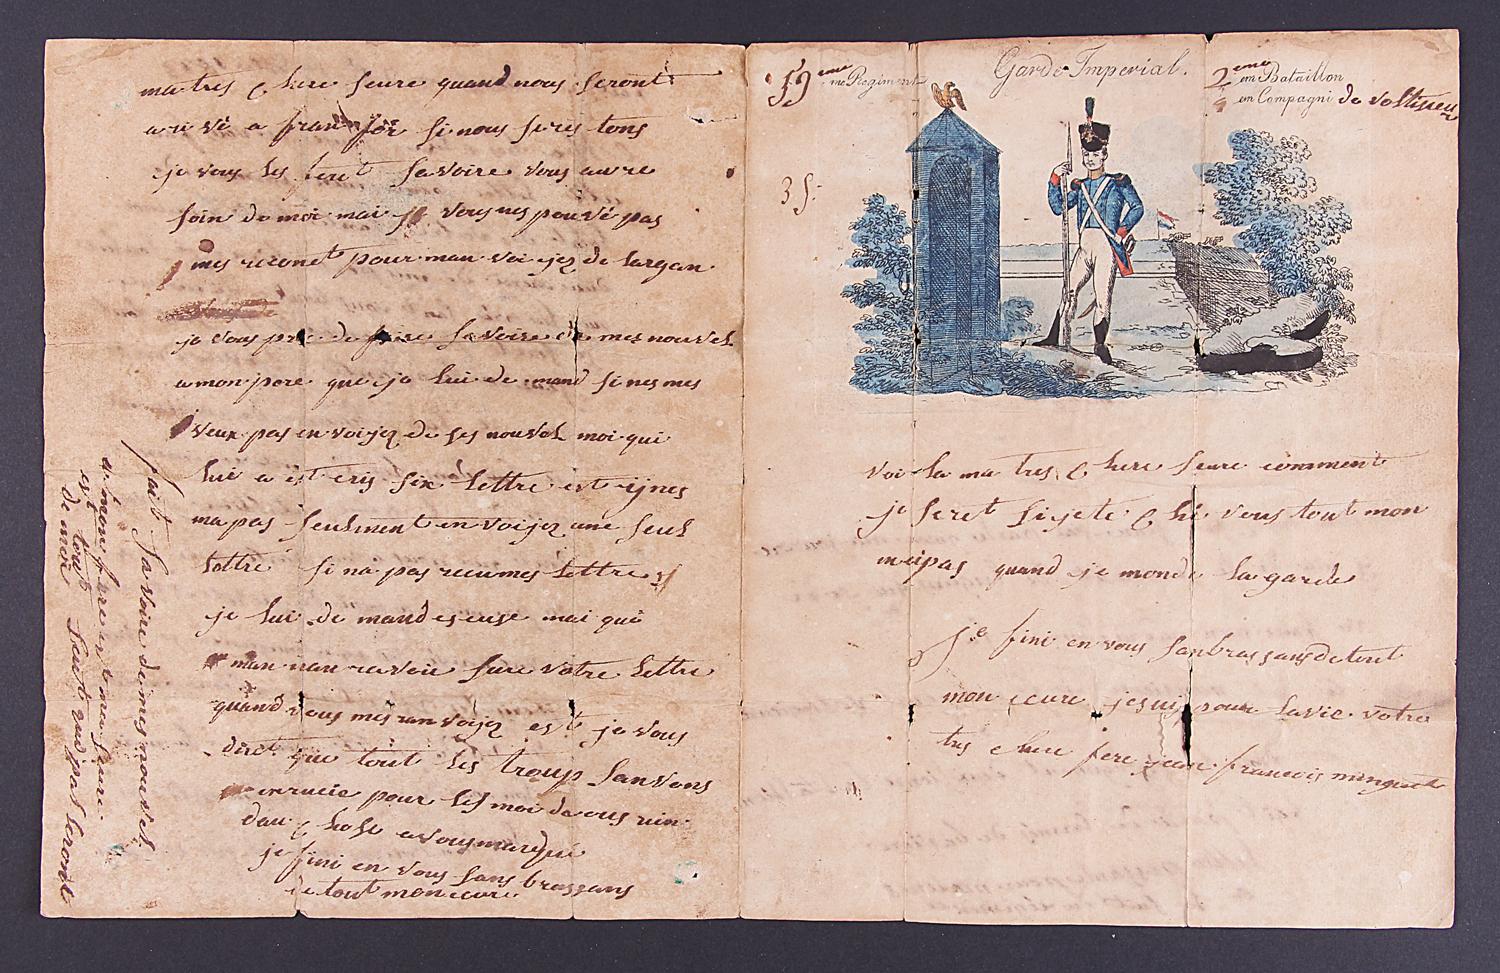 ma tres chere seure quand nous seront
a ri vé a franfor si nous seres tons
je vous les feret savoire vous aure
soin de moi mai je vous nes pouvé pas
mes pour man voi yez de largan
je vous prie de faire savoire de mes nouvel
a mon pere que je lui de mand si nes mes
veux pas en voijez de ses nouvel moi qui
lui a est cris six lettre est ijnes
ma pas seulment en voijez une seul
lettre si na pas recu mes lettre
je lui de mand escuse mai qui
man nan revoie sure votre lettre
quand vous mes ran voijez est je vous
diret que tout les troup san vons
en rucie pour les moi de ous rien
dau chose a vous marqué
je fini en vous sans brassans
de tout mon ceure
fait sa voire de mes nouvel
a mon frere et ma seure
est tout seut qui pal leront
de moi
59 eme me Regiment
Garde Imperial.
2 eme em Bataillon
4 em Compagni de voltigeu
3 S:
voi la ma tres chere seure comment
je seret sijete chi vous tout mon
nei pas quand je monde la garde
je fini en vous sanbrassans de tout
mon ceure je suij pour la vie votre
tres chere frere jean francois minguet